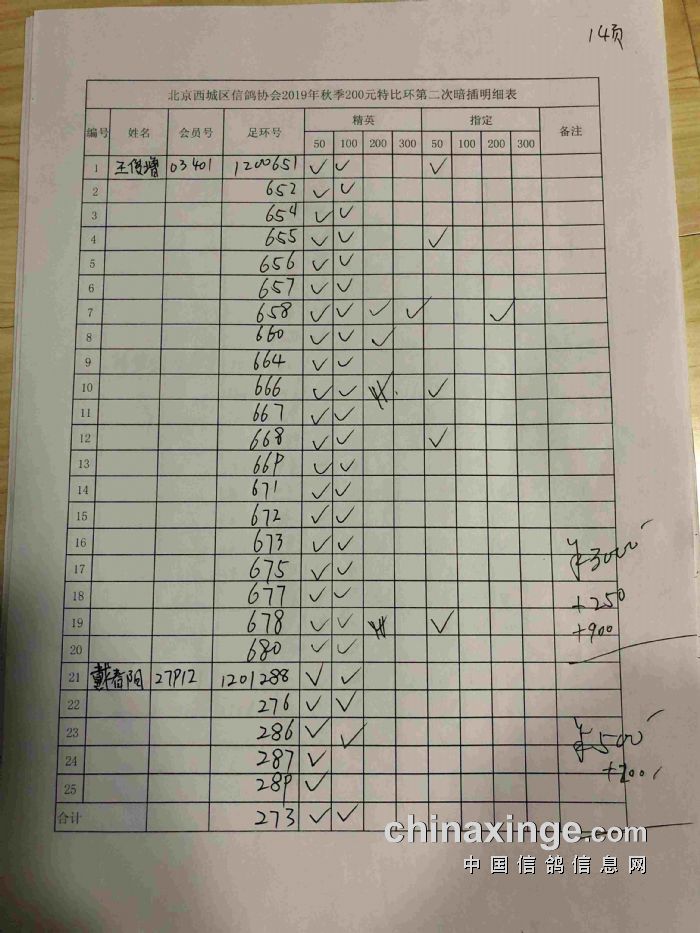 14页
北京西城区信鸽协会2019年秋季200元特比环第二次暗插明细表
编号 姓名 会员号 足环号 精英 指定 备注
50 100 200 300 50 100 200 300
1 王俊增 03401 1200651 ✓ ✓ ✓
2 652 ✓ ✓
3 654 ✓ ✓
4 655 ✓ ✓ ✓
5 656 ✓ ✓
6 657 ✓ ✓
7 658 ✓ ✓ ✓ ✓ ✓
8 660 ✓ ✓ ✓
9 664 ✓ ✓
10 666 ✓ ✓ ✓
11 667 ✓ ✓
12 668 ✓ ✓ ✓
13 669 ✓ ✓
14 671 ✓ ✓
15 672 ✓ ✓
16 673 ✓ ✓
17 675 ✓ ✓
18 677 ✓ ✓
19 678 ✓ ✓ ✓
20 680 ✓ ✓
¥3000
+250
+900
21 戴春阳 27912 1201288 ✓ ✓
22 276 ✓ ✓
23 286 ✓ ✓
24 287 ✓
25 289 ✓
合计 273 ✓ ✓
¥500
+200
chinaxinge.com
中国信鸽信息网